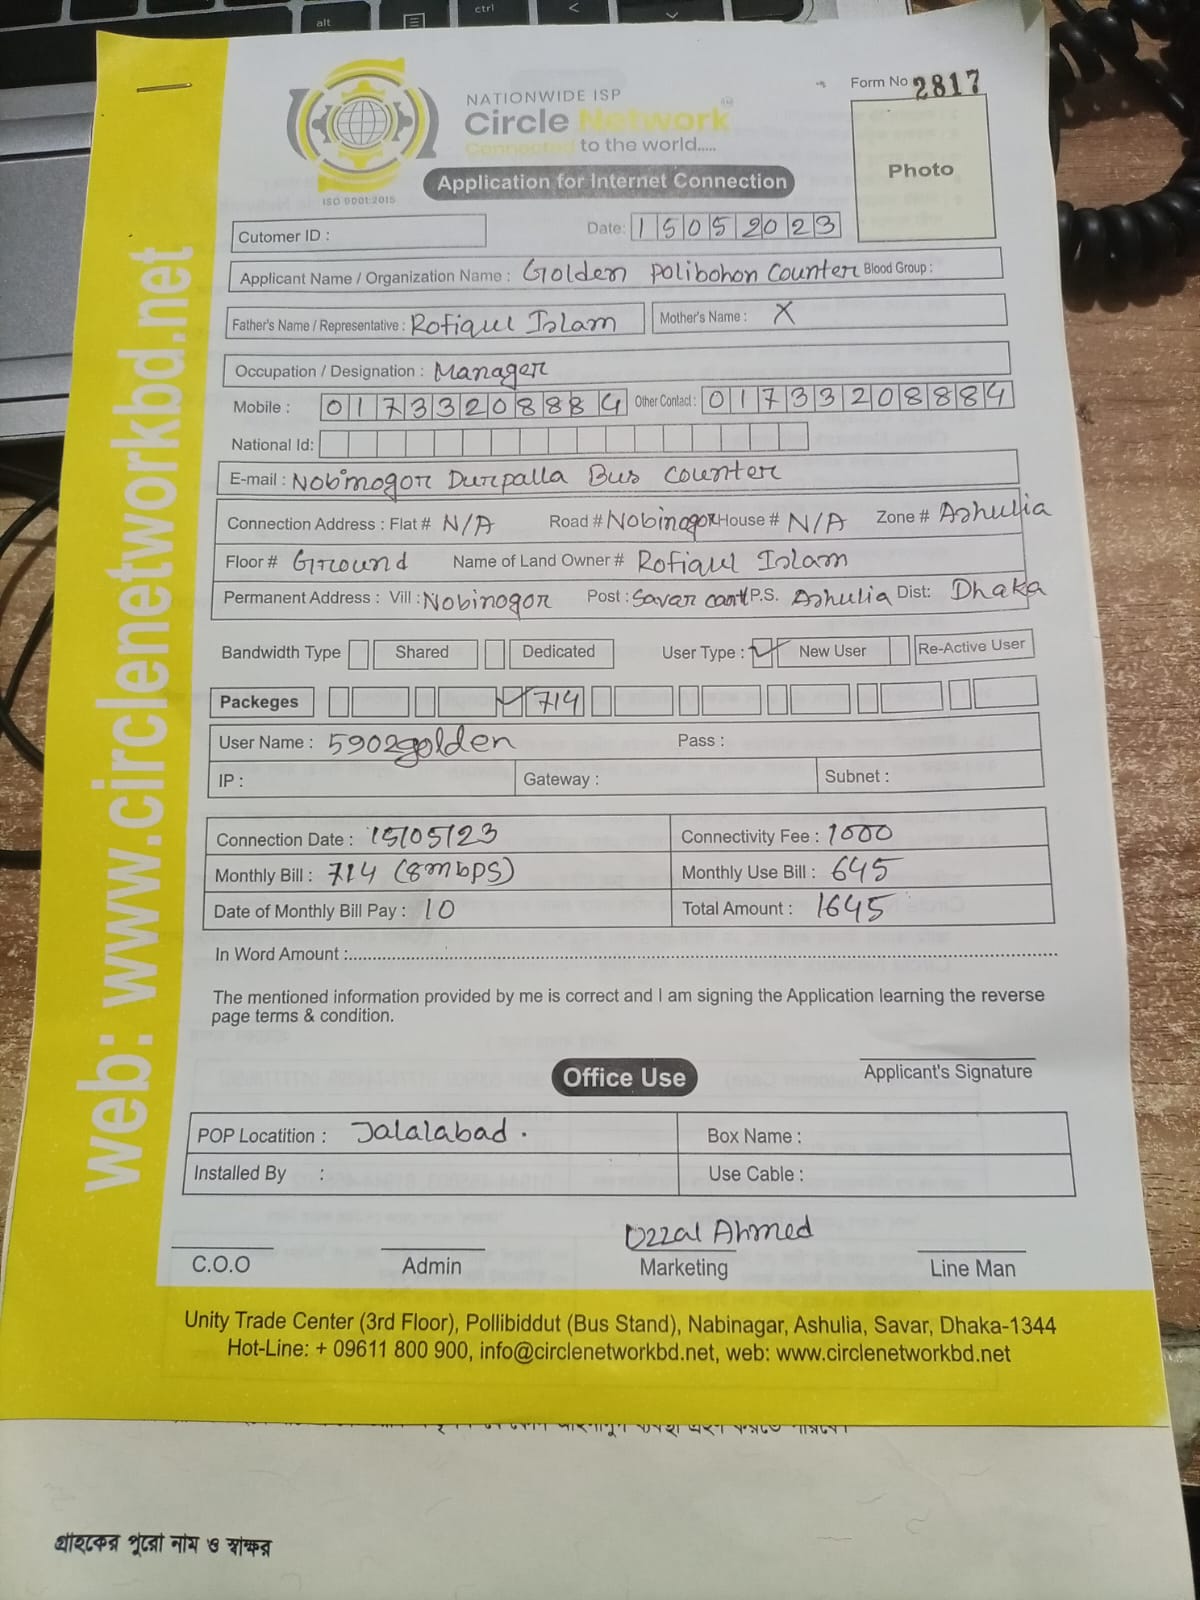 alt
ctrl
<
web: www.circlenetworkbd.net
ISO 9001:2015
NATIONWIDE ISP
Circle Network
Connected to the world.....
Application for Internet Connection
Form No 2817
Photo
Cutomer ID :
Date: 15052023
Applicant Name / Organization Name : Golden Polibohon Counter Blood Group :
Father's Name / Representative : Rofiqul Islam Mother's Name : X
Occupation / Designation : Manager
Mobile : 01733208884 Other Contact : 01733208884
National Id:
E-mail : Nobinogor Durpalla Bus Counter
Connection Address : Flat # N/A Road # Nobinogor House # N/A Zone # Ashulia
Floor # Ground Name of Land Owner # Rofiqul Islam
Permanent Address : Vill : Nobinogor Post : Savar cant P.S. Ashulia Dist: Dhaka
Bandwidth Type Shared Dedicated User Type : ✓ New User Re-Active User
Packeges ✓ 714
User Name : 5902golden Pass :
IP : Gateway : Subnet :
Connection Date : 15/05/23 Connectivity Fee : 1000
Monthly Bill : 714 (8mbps) Monthly Use Bill : 645
Date of Monthly Bill Pay : 10 Total Amount : 1645
In Word Amount :
The mentioned information provided by me is correct and I am signing the Application learning the reverse
page terms & condition.
Office Use
Applicant's Signature
POP Locatition : Jalalabad . Box Name :
Installed By : Use Cable :
Uzzal Ahmed
C.O.O Admin Marketing Line Man
Unity Trade Center (3rd Floor), Pollibiddut (Bus Stand), Nabinagar, Ashulia, Savar, Dhaka-1344
Hot-Line: + 09611 800 900, info@circlenetworkbd.net, web: www.circlenetworkbd.net
গ্রাহকের পুরো নাম ও স্বাক্ষর